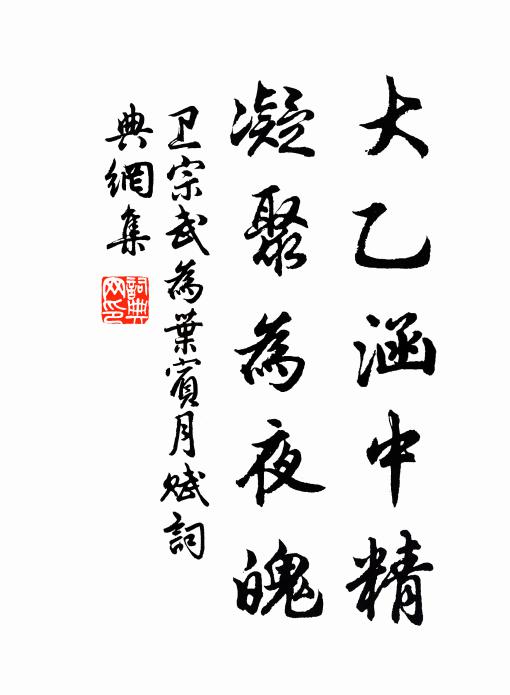 大乙涵中精
凝聚為夜魄
卫宗武為葉賓月賦詞
典網集
詞典
网印